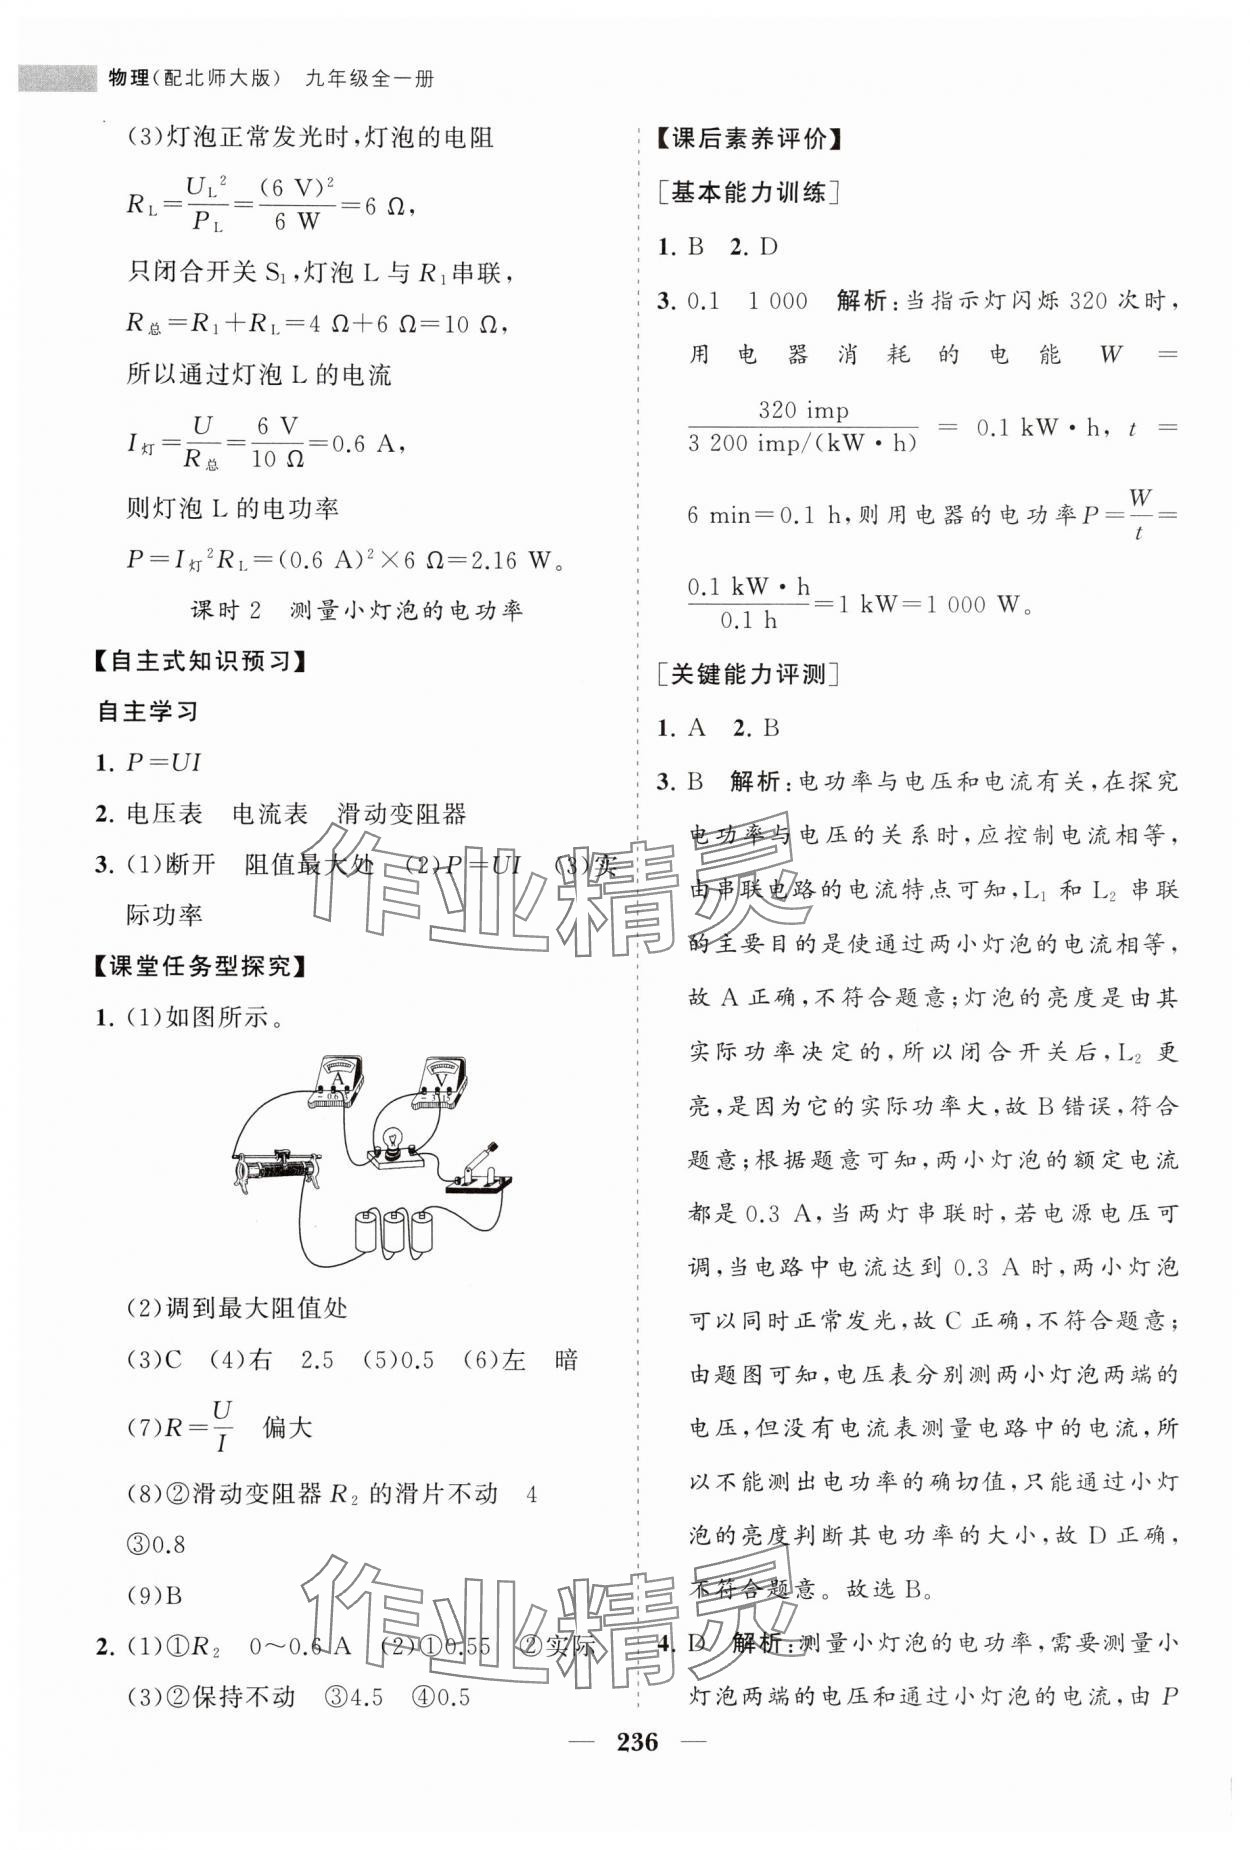 物理(配北师大版) 九年级全一册
(3)灯泡正常发光时,灯泡的电阻
R_L=U_L²/P_L=(6 V)²/6 W=6 Ω,
只闭合开关 S₁,灯泡 L 与 R₁串联,
R总=R₁+R_L=4 Ω+6 Ω=10 Ω,
所以通过灯泡 L 的电流
I灯=U/R总=6 V/10 Ω=0.6 A,
则灯泡 L 的电功率
P=I灯²R_L=(0.6 A)²×6 Ω=2.16 W。
课时2 测量小灯泡的电功率
【自主式知识预习】
自主学习
1. P=UI
2. 电压表 电流表 滑动变阻器
3. (1)断开 阻值最大处 (2)P=UI (3)实
际功率
【课堂任务型探究】
1. (1)如图所示。
A
V
- 0.6 3
- 3 15
(2)调到最大阻值处
(3)C (4)右 2.5 (5)0.5 (6)左 暗
(7)R=U/I 偏大
(8)②滑动变阻器 R₂ 的滑片不动 4
③0.8
(9)B
2. (1)①R₂ 0～0.6 A (2)①0.55 ②实际
(3)②保持不动 ③4.5 ④0.5
【课后素养评价】
[基本能力训练]
1. B 2. D
3. 0.1 1 000 解析:当指示灯闪烁 320 次时,
用电器消耗的电能 W=
320 imp/3 200 imp/(kW·h) = 0.1 kW·h, t =
6 min=0.1 h,则用电器的电功率P=W/t=
0.1 kW·h/0.1 h=1 kW=1 000 W。
[关键能力评测]
1. A 2. B
3. B 解析:电功率与电压和电流有关,在探究
电功率与电压的关系时,应控制电流相等,
由串联电路的电流特点可知,L₁ 和 L₂ 串联
的主要目的是使通过两小灯泡的电流相等,
故 A 正确,不符合题意;灯泡的亮度是由其
实际功率决定的,所以闭合开关后,L₂ 更
亮,是因为它的实际功率大,故 B 错误,符合
题意;根据题意可知,两小灯泡的额定电流
都是 0.3 A,当两灯串联时,若电源电压可
调,当电路中电流达到 0.3 A 时,两小灯泡
可以同时正常发光,故 C 正确,不符合题意;
由题图可知,电压表分别测两小灯泡两端的
电压,但没有电流表测量电路中的电流,所
以不能测出电功率的确切值,只能通过小灯
泡的亮度判断其电功率的大小,故 D 正确,
不符合题意。故选 B。
4. D 解析:测量小灯泡的电功率,需要测量小
灯泡两端的电压和通过小灯泡的电流,由 P
作业精灵
作业精灵
— 236 —